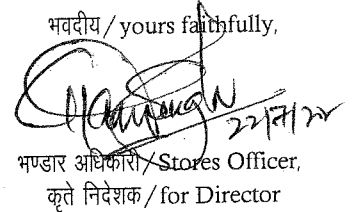 भवदीय / yours faithfully,
22/7/22
भण्डार अधिकारी / Stores Officer,
कृते निदेशक / for Director